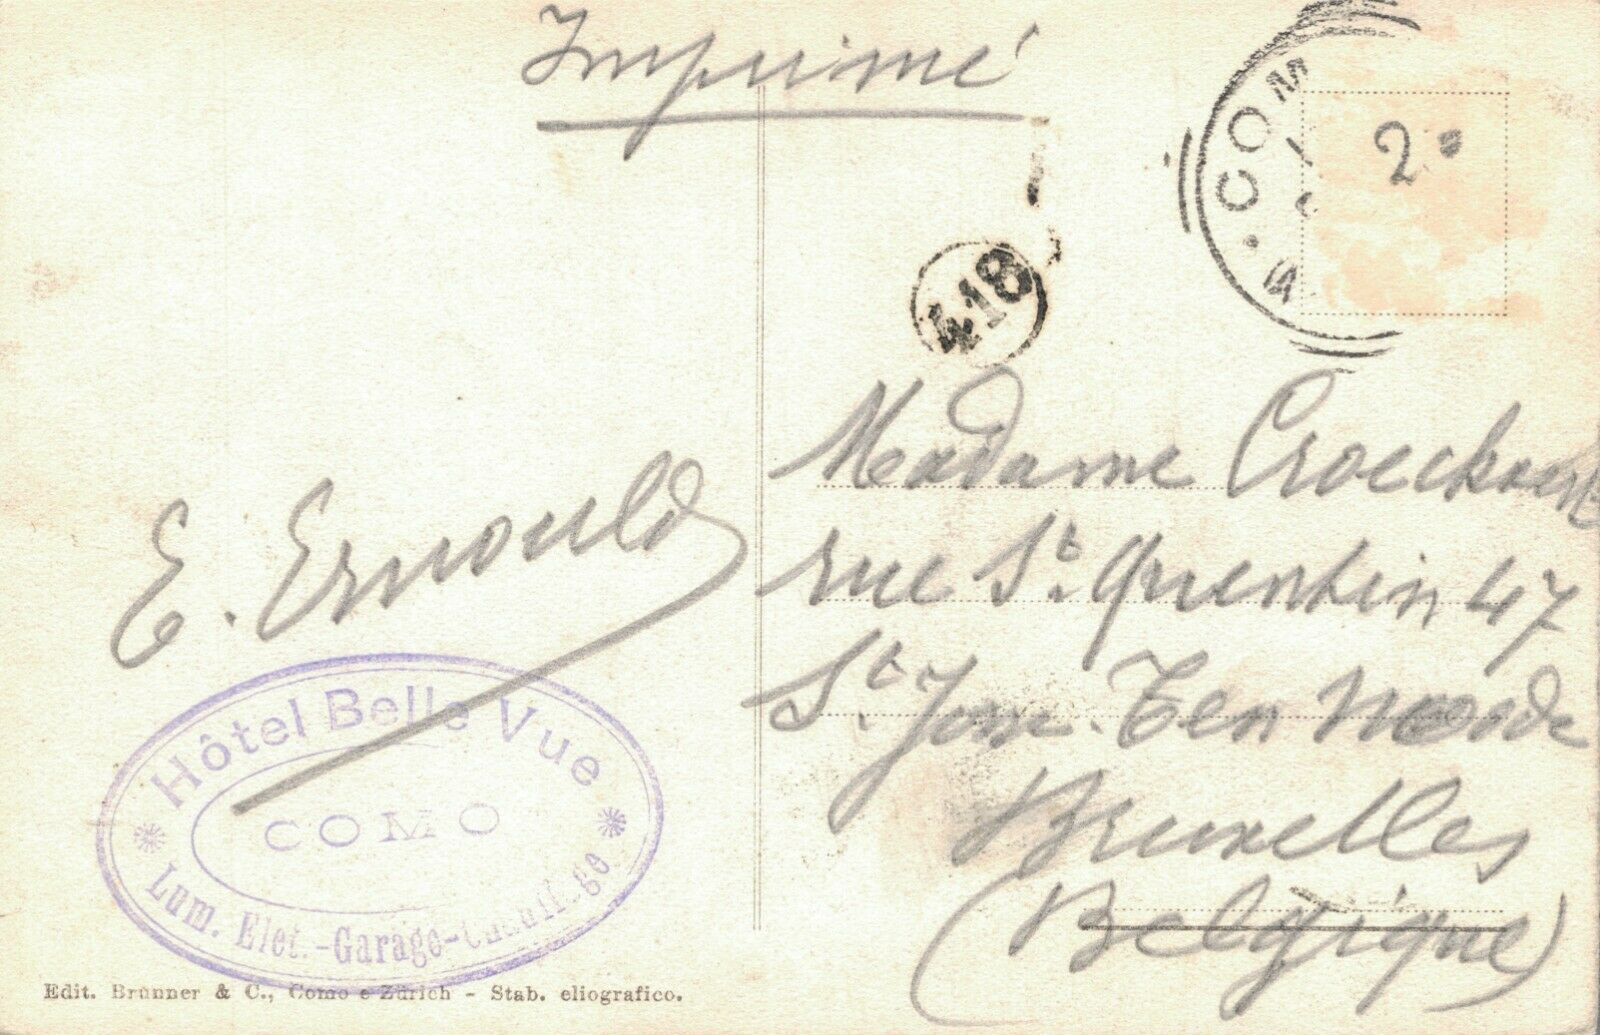 Imprimé
COM
2
418
E. Ernould
Madame Croeckaert
rue St. Quentin 47
St. Josse. Ten Noode
Bruxelles
(Belgique)
Hôtel Belle Vue
COMO
Lum. Elet.-Garage-
Edit. Brunner & C., Como e Zürich - Stab. eliografico.